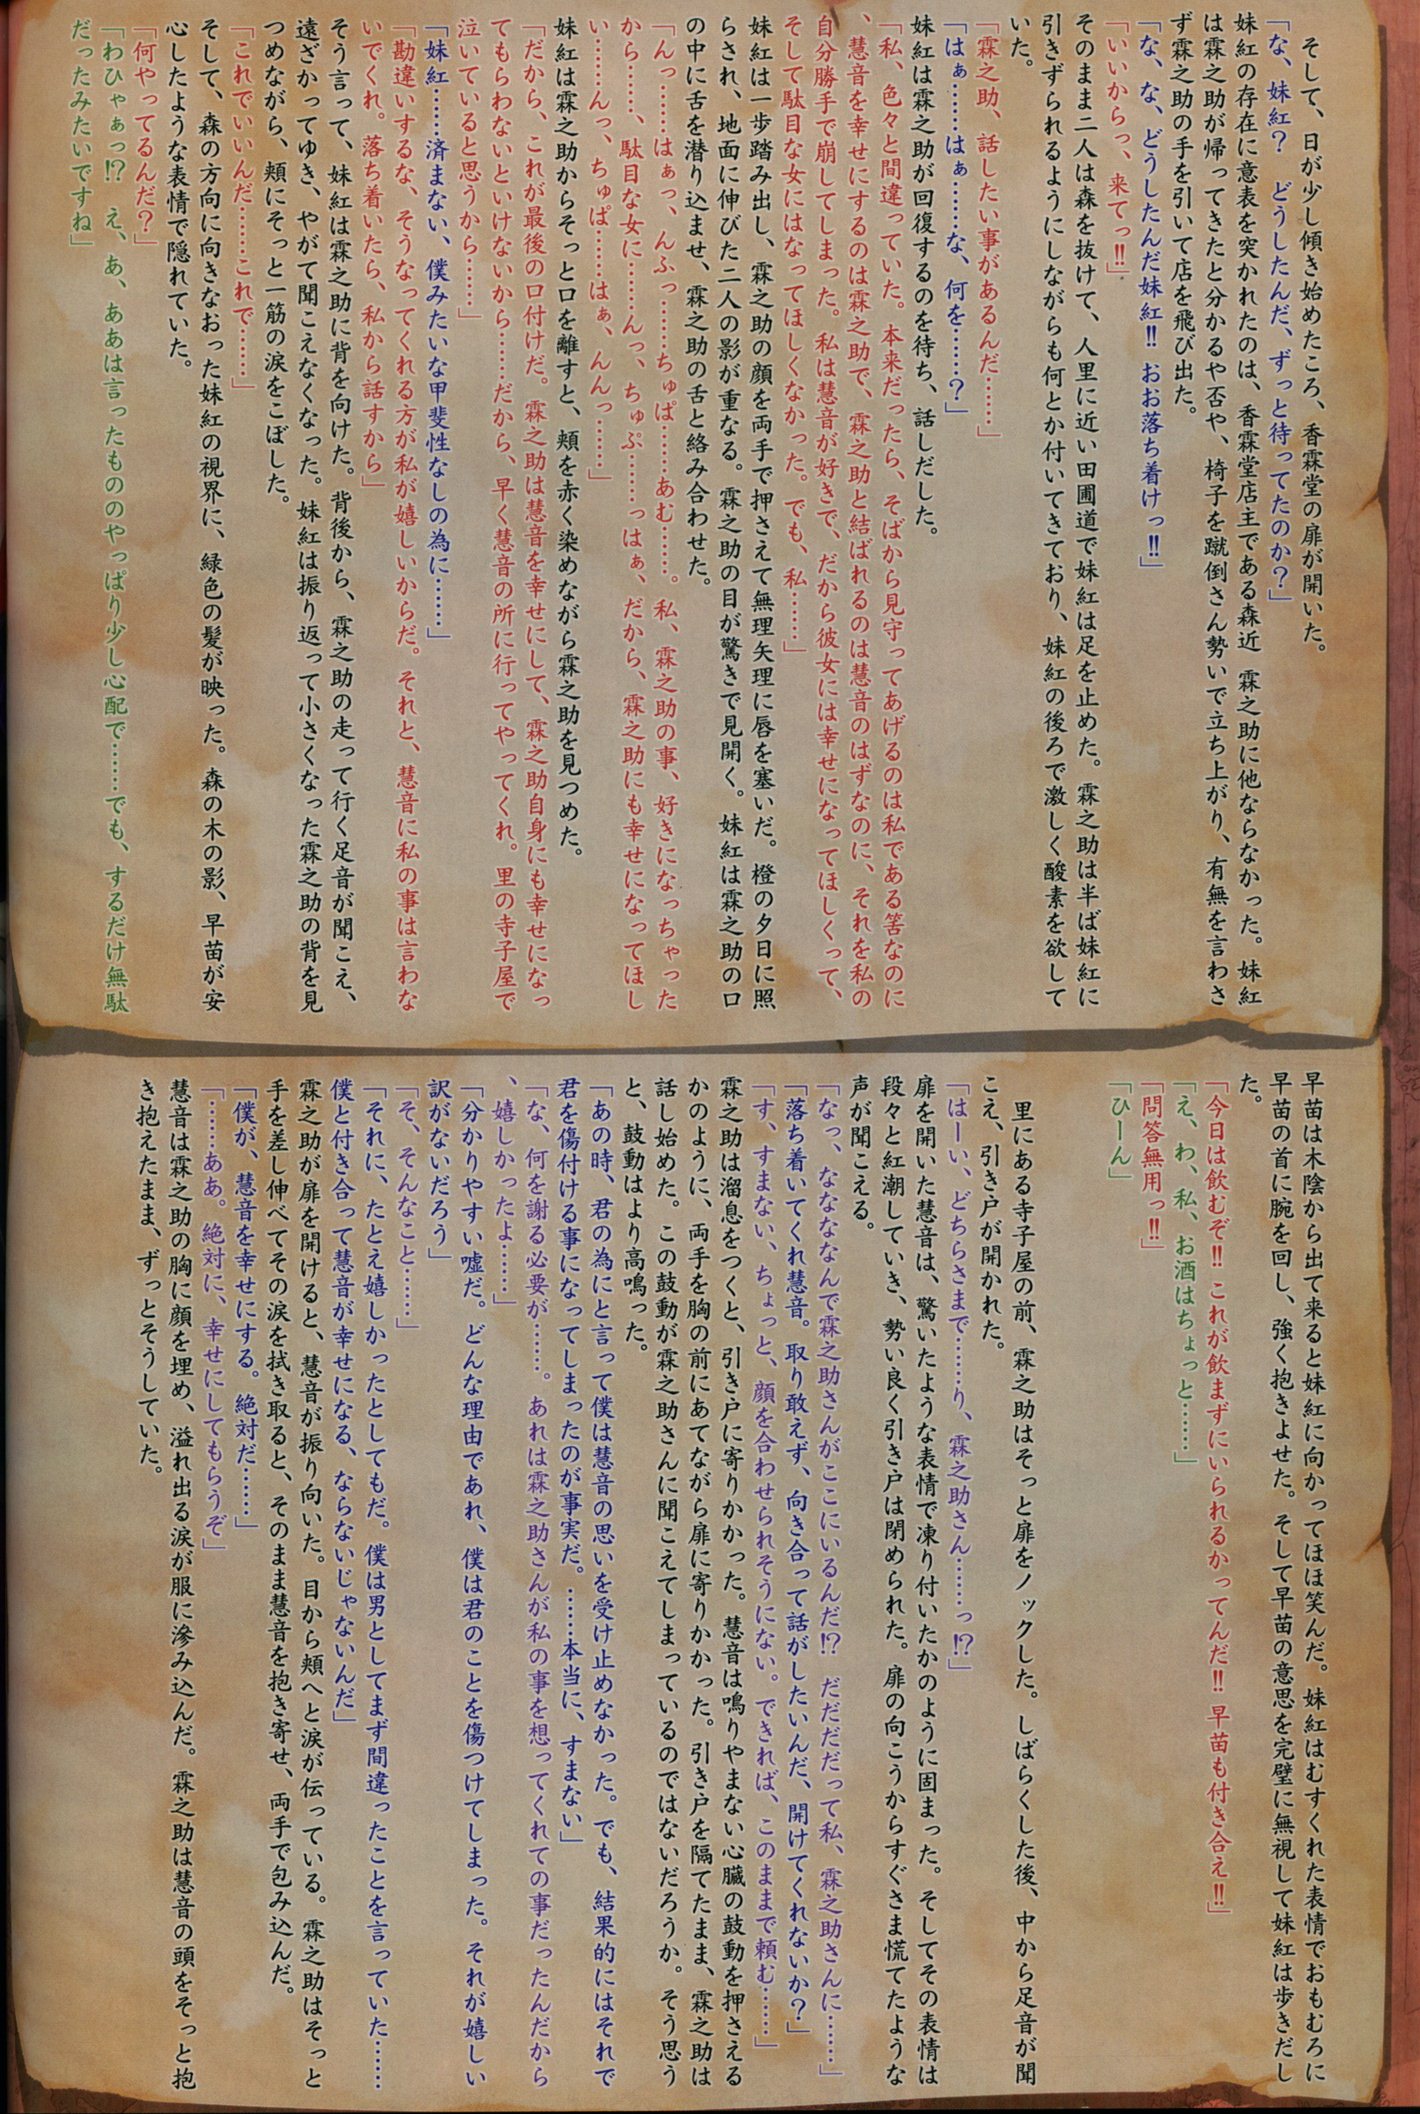 そして、日が少し傾き始めたころ、香霖堂の扉が開いた。
「な、妹紅？　どうしたんだ、ずっと待ってたのか？」
妹紅の存在に意表を突かれたのは、香霖堂店主である森近 霖之助に他ならなかった。妹紅
は霖之助が帰ってきたと分かるや否や、椅子を蹴倒さん勢いで立ち上がり、有無を言わさ
ず霖之助の手を引いて店を飛び出た。
「な、な、どうしたんだ妹紅!! おお落ち着けっ!!」
「いいからっ、来てっ!!」
そのまま二人は森を抜けて、人里に近い田圃道で妹紅は足を止めた。霖之助は半ば妹紅に
引きずられるようにしながらも何とか付いてきており、妹紅の後ろで激しく酸素を欲して
いた。
「霖之助、話したい事があるんだ……」
「はぁ……はぁ……な、何を……？」
妹紅は霖之助が回復するのを待ち、話しだした。
「私、色々と間違っていた。本来だったら、そばから見守ってあげるのは私である筈なのに
、慧音を幸せにするのは霖之助で、霖之助と結ばれるのは慧音のはずなのに、それを私の
自分勝手で崩してしまった。私は慧音が好きで、だから彼女には幸せになってほしくって、
そして駄目な女にはなってほしくなかった。でも、私……」
妹紅は一歩踏み出し、霖之助の顔を両手で押さえて無理矢理に唇を塞いだ。橙の夕日に照
らされ、地面に伸びた二人の影が重なる。霖之助の目が驚きで見開く。妹紅は霖之助の口
の中に舌を潜り込ませ、霖之助の舌と絡み合わせた。
「んっ……はぁっ、んふっ……ちゅぱ……あむ……。私、霖之助の事、好きになっちゃった
から……、駄目な女に……んっ、ちゅぷ……っはぁ、だから、霖之助にも幸せになってほし
い……んっ、ちゅぱ……はぁ、んんっ……」
妹紅は霖之助からそっと口を離すと、頬を赤く染めながら霖之助を見つめた。
「だから、これが最後の口付けだ。霖之助は慧音を幸せにして、霖之助自身にも幸せになっ
てもらわないといけないから……だから、早く慧音の所に行ってやってくれ。里の寺子屋で
泣いていると思うから……」
「妹紅……済まない、僕みたいな甲斐性なしの為に……」
「勘違いするな、そうなってくれる方が私が嬉しいからだ。それと、慧音に私の事は言わな
いでくれ。落ち着いたら、私から話すから」
そう言って、妹紅は霖之助に背を向けた。背後から、霖之助の走って行く足音が聞こえ、
遠ざかってゆき、やがて聞こえなくなった。妹紅は振り返って小さくなった霖之助の背を見
つめながら、頬にそっと一筋の涙をこぼした。
「これでいいんだ……これで……」
そして、森の方向に向きなおった妹紅の視界に、緑色の髪が映った。森の木の影、早苗が安
心したような表情で隠れていた。
「何やってるんだ？」
「わひゃぁっ!?　え、あ、ああは言ったもののやっぱり少し心配で……でも、するだけ無駄
だったみたいですね」
早苗は木陰から出て来ると妹紅に向かってほほ笑んだ。妹紅はむすくれた表情でおもむろに
早苗の首に腕を回し、強く抱きよせた。そして早苗の意思を完璧に無視して妹紅は歩きだし
た。
「今日は飲むぞ!! これが飲まずにいられるかってんだ!! 早苗も付き合え!!」
「え、わ、私、お酒はちょっと……」
「問答無用っ!!」
「ひーん」
里にある寺子屋の前、霖之助はそっと扉をノックした。しばらくした後、中から足音が聞
こえ、引き戸が開かれた。
「はーい、どちらさまで……り、霖之助さん……っ!?」
扉を開いた慧音は、驚いたような表情で凍り付いたかのように固まった。そしてその表情は
段々と紅潮していき、勢い良く引き戸は閉められた。扉の向こうからすぐさま慌てたような
声が聞こえる。
「なっ、なななんで霖之助さんがここにいるんだ!?　だだだだって私、霖之助さんに……」
「落ち着いてくれ慧音。取り敢えず、向き合って話がしたいんだ、開けてくれないか？」
「す、すまない、ちょっと、顔を合わせられそうにない。できれば、このままで頼む……」
霖之助は溜息をつくと、引き戸に寄りかかった。慧音は鳴りやまない心臓の鼓動を押さえる
かのように、両手を胸の前にあてながら扉に寄りかかった。引き戸を隔てたまま、霖之助は
話し始めた。この鼓動が霖之助さんに聞こえてしまっているのではないだろうか。そう思う
と、鼓動はより高鳴った。
「あの時、君の為にと言って僕は慧音の思いを受け止めなかった。でも、結果的にはそれで
君を傷付ける事になってしまったのが事実だ。……本当に、すまない」
「な、何を謝る必要が……。あれは霖之助さんが私の事を想ってくれての事だったんだから
、嬉しかったよ……」
「分かりやすい嘘だ。どんな理由であれ、僕は君のことを傷つけてしまった。それが嬉しい
訳がないだろう」
「そ、そんなこと……」
「それに、たとえ嬉しかったとしてもだ。僕は男としてまず間違ったことを言っていた……
僕と付き合って慧音が幸せになる、ならないじゃないんだ」
霖之助が扉を開けると、慧音が振り向いた。目から頬へと涙が伝っている。霖之助はそっと
手を差し伸べてその涙を拭き取ると、そのまま慧音を抱き寄せ、両手で包み込んだ。
「僕が、慧音を幸せにする。絶対だ……」
「……ああ。絶対に、幸せにしてもらうぞ」
慧音は霖之助の胸に顔を埋め、溢れ出る涙が服に滲み込んだ。霖之助は慧音の頭をそっと抱
き抱えたまま、ずっとそうしていた。